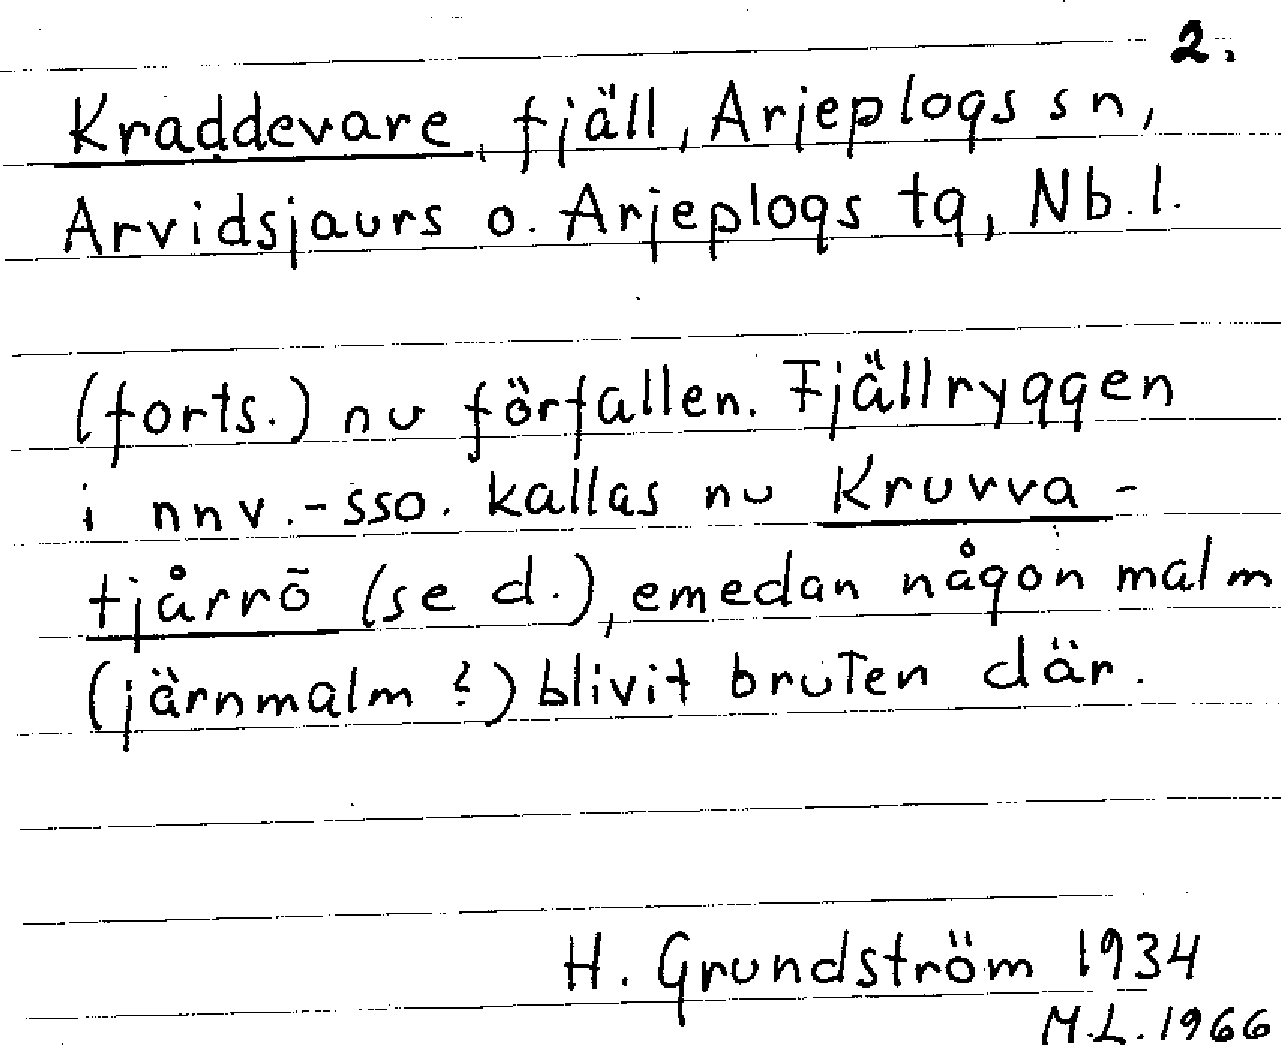 2.
Kraddevare, fjäll, Arjeplogs sn,
Arvidsjaurs o. Arjeplogs tg, Nb. l.
(forts.) nu förfallen. Fjällryggen
i nnv.-sso. kallas nu Kruvva-
tjårrō (se d.), emedan någon malm
(järnmalm ?) blivit bruten där.
H. Grundström 1934
M.L. 1966